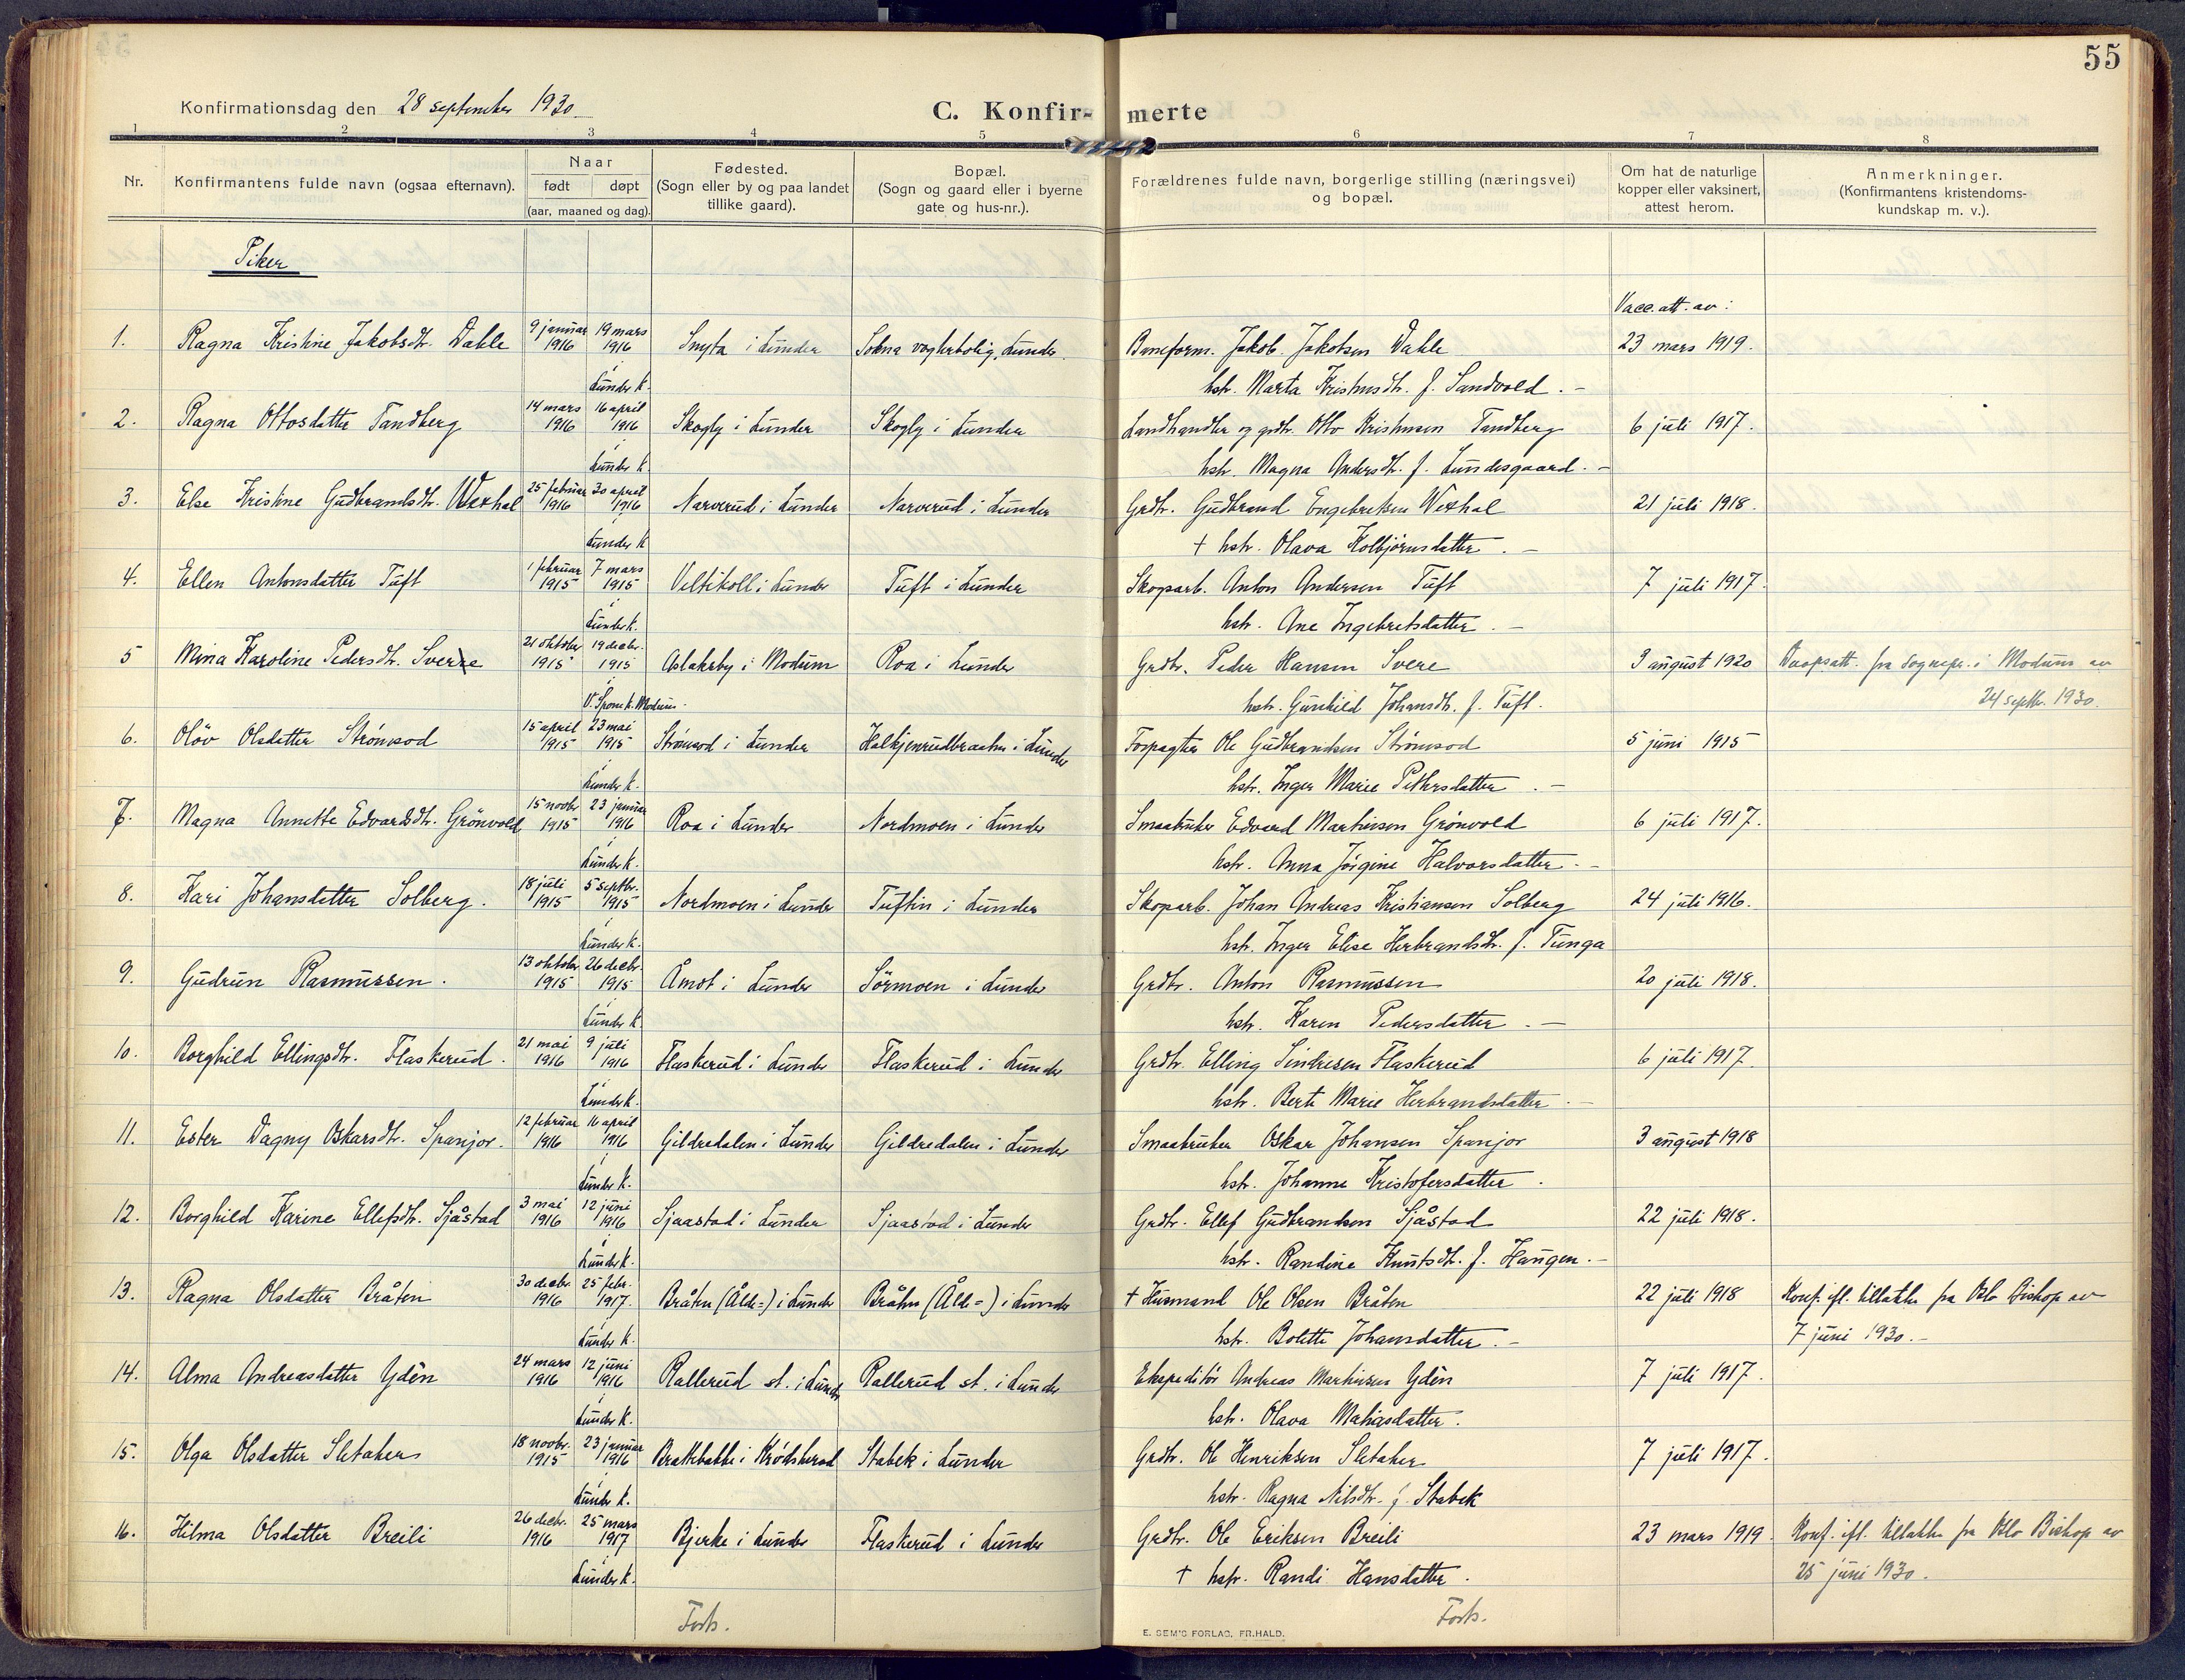 55
Konfirmationsdag den 28 september 1930
C. Konfir- merte
1 2 3 4 5 6 7 8
Nr.
Konfirmantens fulde navn (ogsaa efternavn).
Naar
født døpt
(aar, maaned og dag).
Fødested.
(Sogn eller by og paa landet
tillike gaard).
Bopæl.
(Sogn og gaard eller i byerne
gate og hus-nr.).
Forældrenes fulde navn, borgerlige stilling (næringsvei)
og bopæl.
Om hat de naturlige
kopper eller vaksinert,
attest herom.
Anmerkninger.
(Konfirmantens kristendoms-
kundskap m. v.).
Piker
Vacc. att. av:
1. Ragna Kristine Jakobsdtr. Dahle 9 januar 1916 19 mars 1916 Smyta i Lunder Sokna vogterbolig, Lunder. Baneform. Jakob Jakobsen Dahle 23 mars 1919.
i Lunder K. hstr. Marta Kristensdtr. f. Sandvold. -
2. Ragna Ottosdatter Tandberg 14 mars 1916 16 april 1916 Skogly i Lunder Skogly i Lunder Landhandler og grdbr. Otto Kristensen Tandberg 6 juli 1917.
i Lunder K. hstr. Magna Andersdtr. f. Lundesgaard. -
3. Else Kristine Gudbrandsdtr. Wexhal 25 februar 1916 30 april 1916 Narverud i Lunder Narverud i Lunder Grdbr. Gudbrand Engebretsen Wexhal 21 juli 1918.
i Lunder K + hstr. Olava Kolbjørnsdatter. -
4. Ellen Antonsdatter Tuft 1 februar 1915 7 mars 1915 Veltikoll i Lunder Tuft i Lunder Skogsarb. Anton Andersen Tuft 7 juli 1917.
i Lunder K. hstr. Ane Ingebretsdatter. -
5 Mina Karoline Pedersdtr. Svere 21 oktober 1915 19 decbr. 1915 Aslaksby i Modum Roa i Lunder Grdbr. Peder Hansen Svere 3 august 1920 Daapsatt. fra Sognepr. i Modum av
i V. Spone k. Modum. hstr. Gunhild Johansdtr. f. Tuft. 24 septbr. 1930.
6. Olöv Olsdatter Strømsod 15 april 1915 23 mai 1915 Strømsod i Lunder Halkjenrudbraaten i Lunder Forpagter Ole Gudbrandsen Strømsod 5 juni 1915
i Lunder K. hstr. Inger Marie Pettersdatter. -
7. Magna Annette Edvardsdtr. Grönvold 15 novbr. 1915 23 januar 1916 Roa i Lunder Nordmoen i Lunder Smaabruker Edvard Martinsen Grönvold 6 juli 1917.
i Lunder K. hstr. Anna Jörgine Halvorsdatter. -
8. Kari Johansdatter Solberg. 18 juli 1915 5 septbr. 1915 Nordmoen i Lunder Tuftin i Lunder Skogarb. Johan Andreas Kristiansen Solberg 24 juli 1916.
i Lunder K. hstr. Inger Elise Herbrandsdtr. f. Tunga
9. Gudrun Rasmussen. 13 oktober 1915 26 decbr. 1915 Åmot i Lunder Sörmoen i Lunder Grdbr. Anton Rasmussen 20 juli 1918.
i Lunder K. hstr. Karen Pedersdatter. -
10. Borghild Ellingsdtr. Flaskerud. 21 mai 1916 9 juli 1916 Flaskerud i Lunder Flaskerud i Lunder Grdbr. Elling Sindresen Flaskerud 6 juli 1917.
i Lunder K. hstr. Berte Marie Herbrandsdatter. -
11. Ester Dagny Oskarsdtr. Spanjor. 12 februar 1916 16 april 1916 Gildredalen i Lunder Gildredalen i Lunder Smaabruker Oskar Johansen Spanjor 3 august 1918
i Lunder K. hstr. Johanne Kristofersdatter.
12. Borghild Karine Ellefsdtr. Sjåstad 3 mai 1916 12 juni 1916 Sjaastad i Lunder Sjaastad i Lunder Grdbr. Ellef Gudbrandsen Sjåstad 22 juli 1918.
i Lunder K. hstr. Randine Knutsdtr. f. Haugen. -
13. Ragna Olsdatter Bråten 30 decbr. 1916 25 febr. 1917. Bråten (Åld=) i Lunder Bråten (Åld=) i Lunder + Husmand Ole Olsen Bråten 22 juli 1918 Konf. ifl. tillatelse fra Oslo Biskop av
i Lunder K. hstr. Bolette Johansdatter. - 7 juni 1930. -
14. Alma Andreasdatter Ydén 24 mars 1916 12 juni 1916 Rallerud st. i Lunder Rallerud st. i Lunder Ekspeditör Andreas Martinsen Ydén 7 juli 1917.
i Lunder K. hstr. Olava Matiasdatter.
15. Olga Olsdatter Sletaker 18 novbr. 1915 23 januar 1916 Brattebakke i Krödsherad Stabek i Lunder Grdbr. Ole Henriksen Sletaker 7 juli 1917.
i Lunder K. hstr. Ragna Nilsdtr. f. Stabek
16. Hilma Olsdatter Breili 26 decbr. 1916 25 mars 1917 Bjerke i Lunder Flaskerud i Lunder Grdbr. Ole Eriksen Breili 23 mars 1919. Konf. ifl. tillatelse fra Oslo Biskop av
i Lunder K. + hstr. Randi Hansdatter. 25 juni 1930.
Forts. Forts.
E. SEM'S FORLAG, FR.HALD.